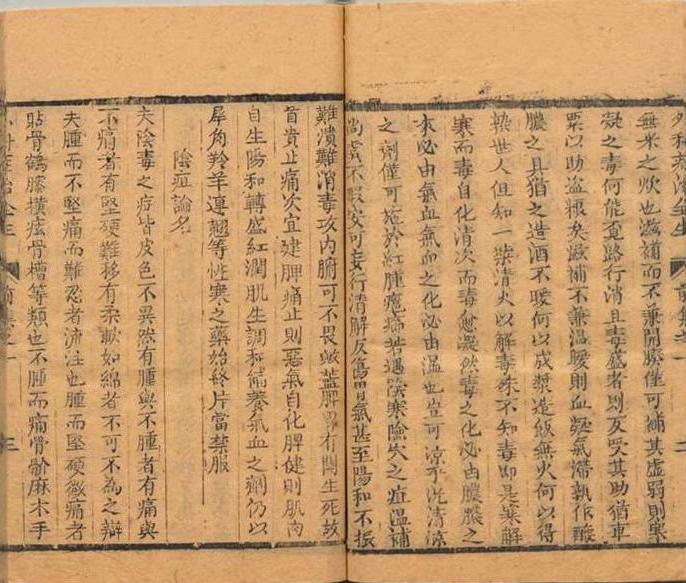 外科證治全生 前集之一 二
無米之炊也滋補而不兼開腠僅可補其虛弱則寒
凝之毒何能覓路行消且毒盛者則反受其助猶車
粟以助盜糧矣滋補不兼溫暖則血凝氣滯孰作釀
膿之具猶之造酒不暖何以成漿造飯無火何以得
熟世人但知一槩清火以解毒殊不知毒即是寒解
寒而毒自化清火而毒愈凝然毒之化必由膿膿之
來必由氣血氣血之化必由溫也豈可涼乎況清涼
之劑僅可施於紅腫癰癤若遇陰寒險穴之疽溫補
尚虞不暇安可妄行清解反傷胃氣甚至陽和不振
難潰難消毒攻內腑可不畏歟蓋脾胃有關生死故
首貴止痛次宜建脾痛止則惡氣自化脾健則肌肉
自生陽和轉盛紅潤肌生調和補養氣血之劑仍以
犀角羚羊連翹等性寒之藥始終片當禁服
陰疽論名
夫陰毒之症皆皮色不異然有腫與不腫者有痛與
不痛者有堅硬難移有柔軟如綿者不可不為之辯
夫腫而不堅痛而難忍者流注也腫而堅硬微痛者
貼骨鶴膝橫痃骨槽等類也不腫而痛骨骱麻木手
外科證治全生 前集之一 三